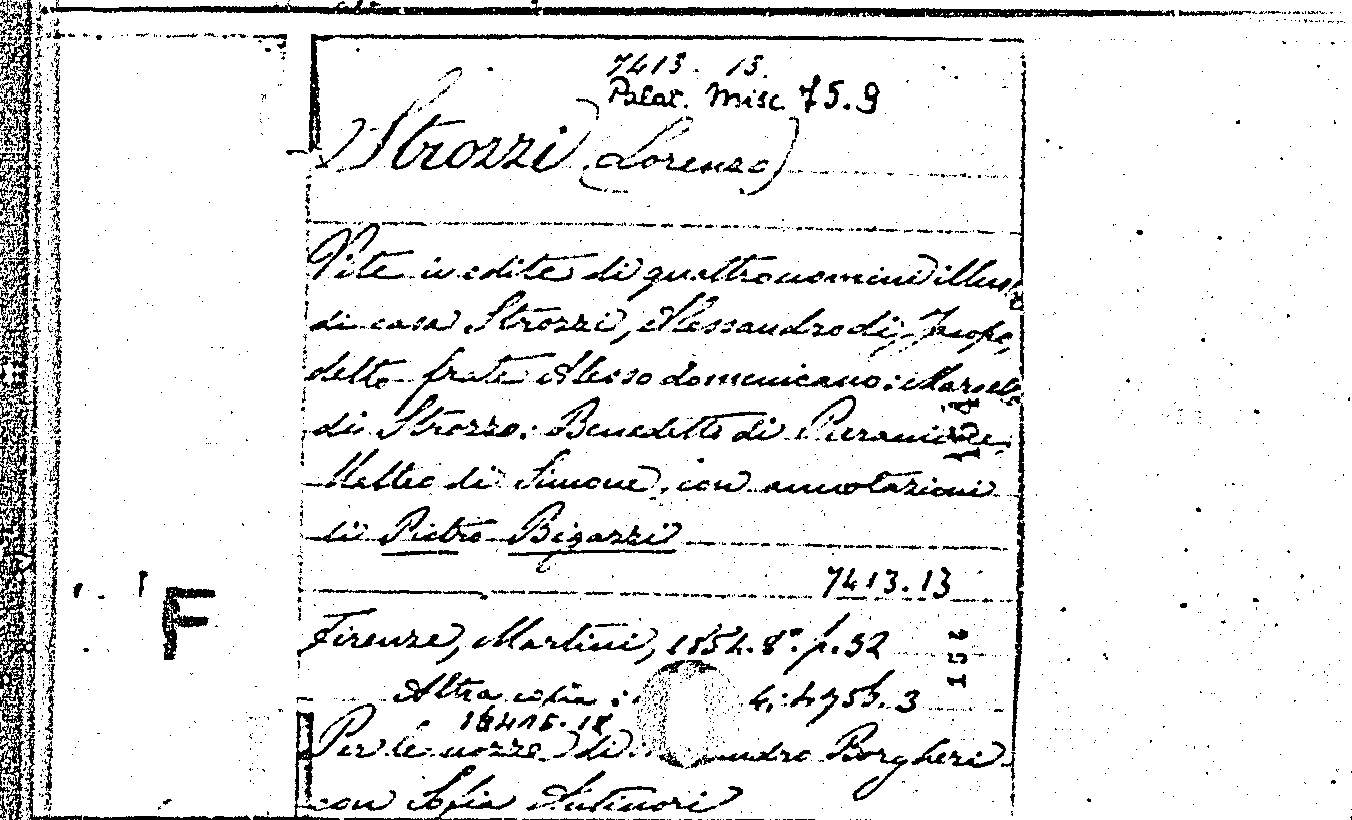 7413. 13.
Palat. Misc 75.9
Strozzi (Lorenzo)
Vite inedite di quattro uomini illustri
di casa Strozzi, Alessandro di Jacopo,
detto frate Alesso domenicano: Marcello
di Strozzo: Benedetto di Pieranione:
Matteo di Simone, con annotazioni
di Pietro Bigazzi
7413.13
Firenze, Martini, 1854. 8° p. 32
Altra copia: 4. 4756. 3
16415.18
Per le nozze di Borgheri
con Sofia
F